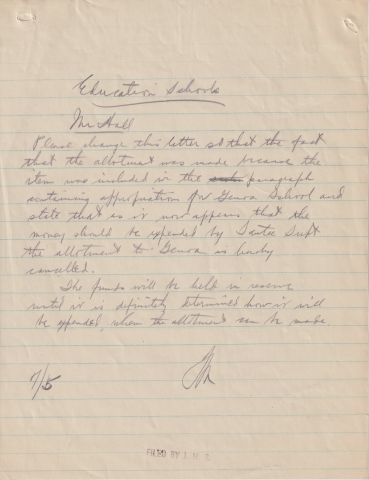 Education Schools
Mr Hall
Please change this letter so that the fact
that the allotment was made because the
item was included in the paragraph
containing appropriation for Genoa School and
state that as it now appears that the
money should be expended by Santee Supt
the allotment to Genoa is hereby
cancelled.
The funds will be held in reserve
until it is definitely determined how it will
be expended, when the allotment can be made.
7/5
FILED BY